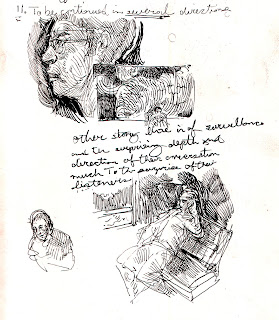 To be continued in several directions
Other story line is of surveillance
and the surprising depth and
direction of their conversation
much To the surprise of their
listeners